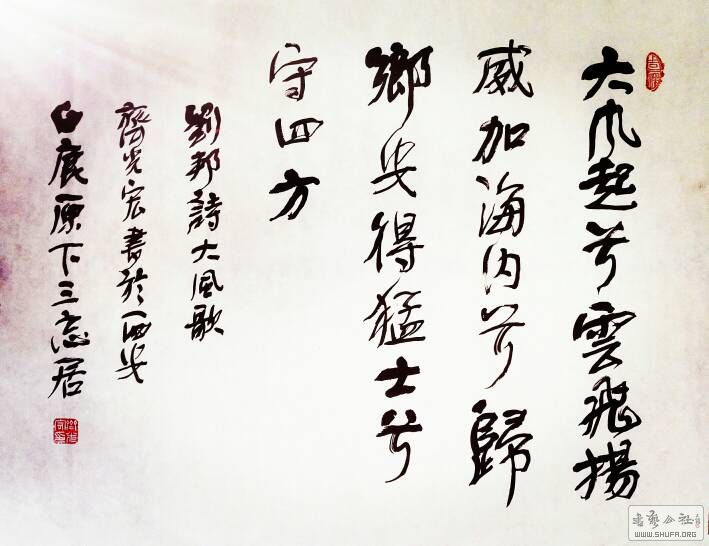 大风起兮雲飛揚
威加海内兮歸
鄉安得猛士兮
守四方
劉邦詩大風歌
齊光宏書於西安
白鹿原下三忘居
書藝公社
WWW.SHUFA.ORG